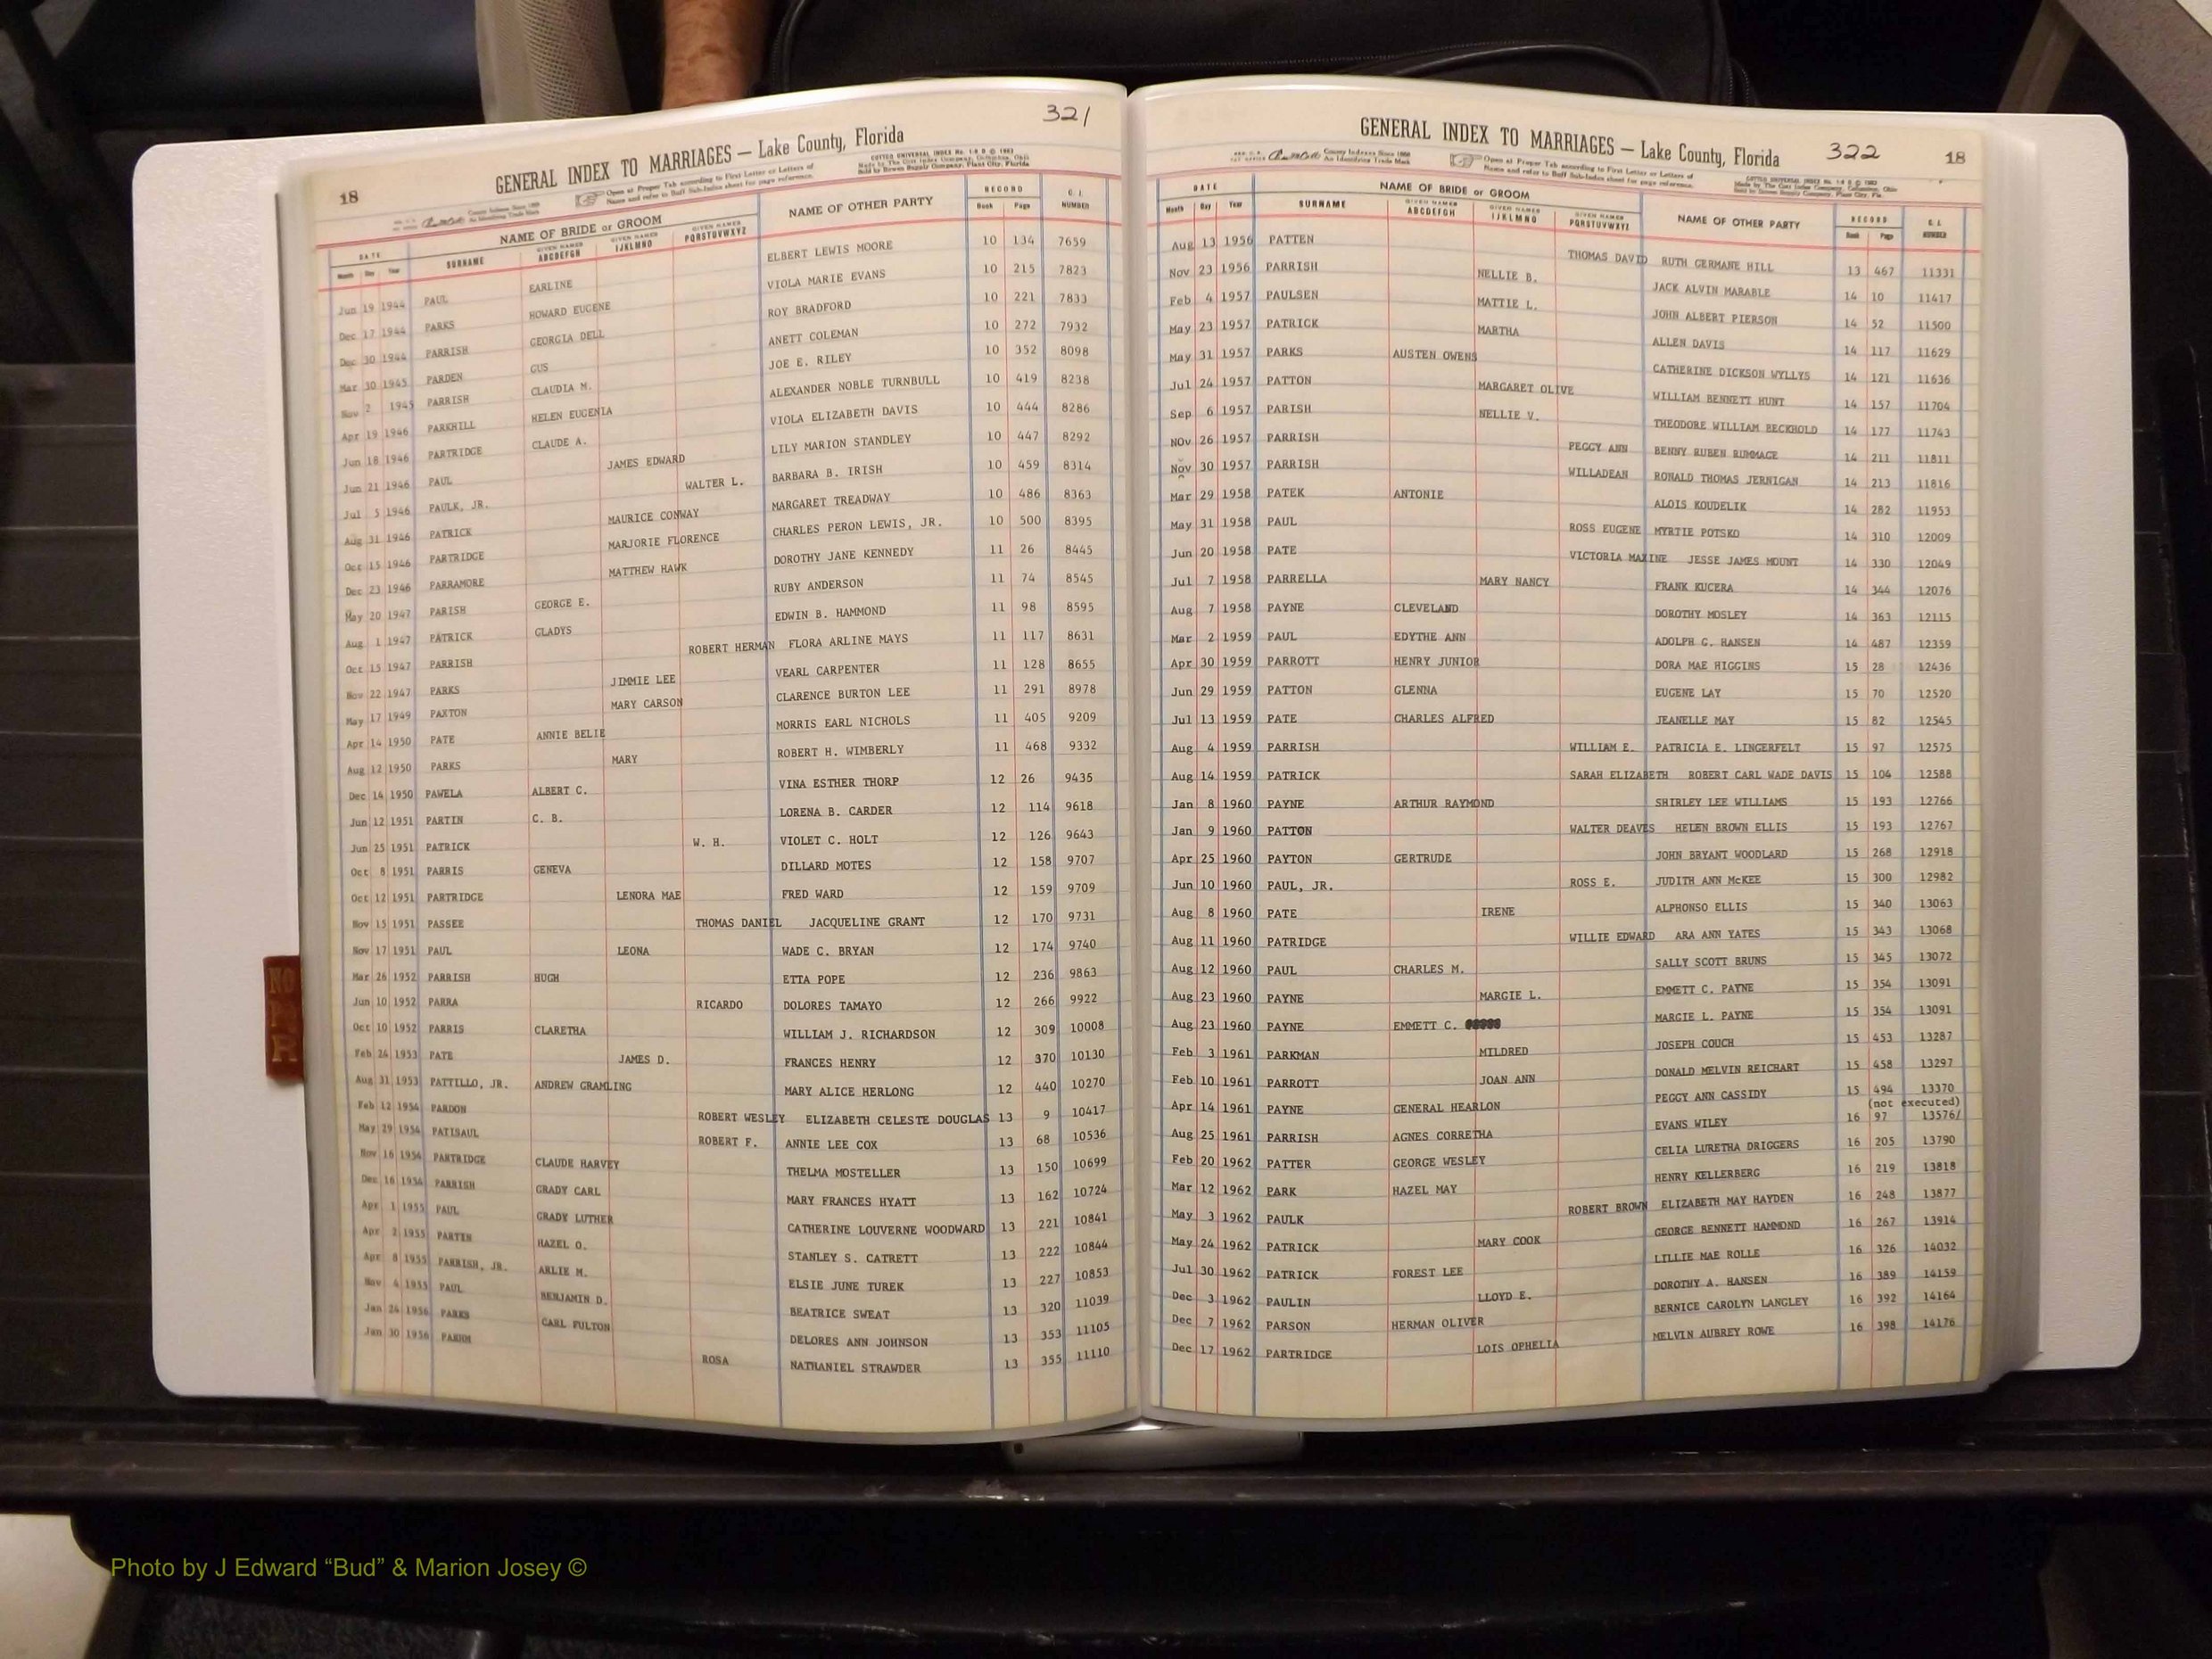 321
18
GENERAL INDEX TO MARRIAGES — Lake County, Florida
Open at Proper Tab according to First Letter or Letters of
Name and refer to Buff Sub-Index sheet for page reference.
DATE NAME OF BRIDE or GROOM NAME OF OTHER PARTY RECORD G. I. NUMBER
Month Day Year SURNAME GIVEN NAMES ABCDEFGH GIVEN NAMES IJKLMNO GIVEN NAMES PQRSTUVWXYZ Book Page
Jun 19 1944 PAUL EARLINE ELBERT LEWIS MOORE 10 134 7659
Dec 17 1944 PARKS HOWARD EUGENE VIOLA MARIE EVANS 10 215 7823
Dec 30 1944 PARRISH GEORGIA DELL ROY BRADFORD 10 221 7833
Mar 30 1945 PARDEN GUS ANETT COLEMAN 10 272 7932
Nov 2 1945 PARRISH CLAUDIA M. JOE E. RILEY 10 352 8098
Apr 19 1946 PARKHILL HELEN EUGENIA ALEXANDER NOBLE TURNBULL 10 419 8238
Jun 18 1946 PARTRIDGE CLAUDE A. VIOLA ELIZABETH DAVIS 10 444 8286
Jun 21 1946 PAUL JAMES EDWARD LILY MARION STANDLEY 10 447 8292
Jul 5 1946 PAULK, JR. WALTER L. BARBARA B. IRISH 10 459 8314
Aug 31 1946 PATRICK MAURICE CONWAY MARGARET TREADWAY 10 486 8363
Oct 15 1946 PARTRIDGE MARJORIE FLORENCE CHARLES PERON LEWIS, JR. 10 500 8395
Dec 23 1946 PARRAMORE MATTHEW HAWK DOROTHY JANE KENNEDY 11 26 8445
May 20 1947 PARISH GEORGE E. RUBY ANDERSON 11 74 8545
Aug 1 1947 PATRICK GLADYS EDWIN B. HAMMOND 11 98 8595
Oct 15 1947 PARRISH ROBERT HERMAN FLORA ARLINE MAYS 11 117 8631
Nov 22 1947 PARKS JIMMIE LEE VEARL CARPENTER 11 128 8655
May 17 1949 PAXTON MARY CARSON CLARENCE BURTON LEE 11 291 8978
Apr 14 1950 PATE ANNIE BELIE MORRIS EARL NICHOLS 11 405 9209
Aug 12 1950 PARKS MARY ROBERT H. WIMBERLY 11 468 9332
Dec 14 1950 PAWELA ALBERT C. VINA ESTHER THORP 12 26 9435
Jun 12 1951 PARTIN C. B. LORENA B. CARDER 12 114 9618
Jun 25 1951 PATRICK W. H. VIOLET C. HOLT 12 126 9643
Oct 8 1951 PARRIS GENEVA DILLARD MOTES 12 158 9707
Oct 12 1951 PARTRIDGE LENORA MAE FRED WARD 12 159 9709
Nov 15 1951 PASSEE THOMAS DANIEL JACQUELINE GRANT 12 170 9731
Nov 17 1951 PAUL LEONA WADE C. BRYAN 12 174 9740
Mar 26 1952 PARRISH HUGH ETTA POPE 12 236 9863
Jun 10 1952 PARRA RICARDO DOLORES TAMAYO 12 266 9922
Oct 10 1952 PARRIS CLARETHA WILLIAM J. RICHARDSON 12 309 10008
Feb 24 1953 PATE JAMES D. FRANCES HENRY 12 370 10130
Aug 31 1953 PATTILLO, JR. ANDREW GRAMLING MARY ALICE HERLONG 12 440 10270
Feb 12 1954 PARDON ROBERT WESLEY ELIZABETH CELESTE DOUGLAS 13 9 10417
May 29 1954 PATISAUL ROBERT F. ANNIE LEE COX 13 68 10536
Nov 16 1954 PARTRIDGE CLAUDE HARVEY THELMA MOSTELLER 13 150 10699
Dec 16 1954 PARRISH GRADY CARL MARY FRANCES HYATT 13 162 10724
Apr 1 1955 PAUL GRADY LUTHER CATHERINE LOUVERNE WOODWARD 13 221 10841
Apr 2 1955 PARTIN HAZEL O. STANLEY S. CATRETT 13 222 10844
Apr 8 1955 PARRISH, JR. ARLIE M. ELSIE JUNE TUREK 13 227 10853
Nov 4 1955 PAUL BENJAMIN D. BEATRICE SWEAT 13 320 11039
Jan 24 1956 PARKS CARL FULTON DELORES ANN JOHNSON 13 353 11105
Jan 30 1956 ROSA NATHANIEL STRAWDER 13 355 11110
GENERAL INDEX TO MARRIAGES — Lake County, Florida 322 18
Open at Proper Tab according to First Letter or Letters of
Name and refer to Buff Sub-Index sheet for page reference.
DATE NAME OF BRIDE or GROOM NAME OF OTHER PARTY RECORD G. I. NUMBER
Month Day Year SURNAME GIVEN NAMES ABCDEFGH GIVEN NAMES IJKLMNO GIVEN NAMES PQRSTUVWXYZ Book Page
Aug 13 1956 PATTEN THOMAS DAVID RUTH GERMANE HILL 13 467 11331
Nov 23 1956 PARRISH NELLIE B. JACK ALVIN MARABLE 14 10 11417
Feb 4 1957 PAULSEN MATTIE L. JOHN ALBERT PIERSON 14 52 11500
May 23 1957 PATRICK MARTHA ALLEN DAVIS 14 117 11629
May 31 1957 PARKS AUSTEN OWENS CATHERINE DICKSON WYLLYS 14 121 11636
Jul 24 1957 PATTON MARGARET OLIVE WILLIAM BENNETT HUNT 14 157 11704
Sep 6 1957 PARISH NELLIE V. THEODORE WILLIAM BECKHOLD 14 177 11743
NOV 26 1957 PARRISH PEGGY ANN BENNY RUBEN RUMMAGE 14 211 11811
Nov 30 1957 PARRISH WILLADEAN RONALD THOMAS JERNIGAN 14 213 11816
Mar 29 1958 PATEK ANTONIE ALOIS KOUDELIK 14 282 11953
May 31 1958 PAUL ROSS EUGENE MYRTIE POTSKO 14 310 12009
Jun 20 1958 PATE VICTORIA MAXINE JESSE JAMES MOUNT 14 330 12049
Jul 7 1958 PARRELLA MARY NANCY FRANK KUCERA 14 344 12076
Aug 7 1958 PAYNE CLEVELAND DOROTHY MOSLEY 14 363 12115
Mar 2 1959 PAUL EDYTHE ANN ADOLPH G. HANSEN 14 487 12359
Apr 30 1959 PARROTT HENRY JUNIOR DORA MAE HIGGINS 15 28 12436
Jun 29 1959 PATTON GLENNA EUGENE LAY 15 70 12520
Jul 13 1959 PATE CHARLES ALFRED JEANELLE MAY 15 82 12545
Aug 4 1959 PARRISH WILLIAM E. PATRICIA E. LINGERFELT 15 97 12575
Aug 14 1959 PATRICK SARAH ELIZABETH ROBERT CARL WADE DAVIS 15 104 12588
Jan 8 1960 PAYNE ARTHUR RAYMOND SHIRLEY LEE WILLIAMS 15 193 12766
Jan 9 1960 PATTON WALTER DEAVES HELEN BROWN ELLIS 15 193 12767
Apr 25 1960 PAYTON GERTRUDE JOHN BRYANT WOODLARD 15 268 12918
Jun 10 1960 PAUL, JR. ROSS E. JUDITH ANN McKEE 15 300 12982
Aug 8 1960 PATE IRENE ALPHONSO ELLIS 15 340 13063
Aug 11 1960 PATRIDGE WILLIE EDWARD ARA ANN YATES 15 343 13068
Aug 12 1960 PAUL CHARLES M. SALLY SCOTT BRUNS 15 345 13072
Aug 23 1960 PAYNE MARGIE L. EMMETT C. PAYNE 15 354 13091
Aug 23 1960 PAYNE EMMETT C. MARGIE L. PAYNE 15 354 13091
Feb 3 1961 PARKMAN MILDRED JOSEPH COUCH 15 453 13287
Feb 10 1961 PARROTT JOAN ANN DONALD MELVIN REICHART 15 458 13297
Apr 14 1961 PAYNE GENERAL HEARLON PEGGY ANN CASSIDY 15 494 13370
(not executed)
Aug 25 1961 PARRISH AGNES CORRETHA EVANS WILEY 16 97 13576/
Feb 20 1962 PATTER GEORGE WESLEY CELIA LURETHA DRIGGERS 16 205 13790
Mar 12 1962 PARK HAZEL MAY HENRY KELLERBERG 16 219 13818
May 3 1962 PAULK ROBERT BROWN ELIZABETH MAY HAYDEN 16 248 13877
May 24 1962 PATRICK MARY COOK GEORGE BENNETT HAMMOND 16 267 13914
Jul 30 1962 PATRICK FOREST LEE LILLIE MAE ROLLE 16 326 14032
Dec 3 1962 PAULIN LLOYD E. DOROTHY A. HANSEN 16 389 14159
Dec 7 1962 PARSON HERMAN OLIVER BERNICE CAROLYN LANGLEY 16 392 14164
Dec 17 1962 PARTRIDGE LOIS OPHELIA MELVIN AUBREY ROWE 16 398 14176
Photo by J Edward “Bud” & Marion Josey ©